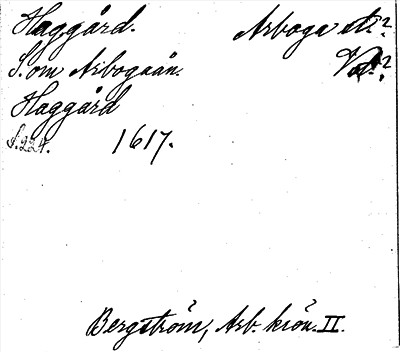 Haggård. Arboga st.?
S. om Arbogaån.
Haggård
S. 224. 1617.
Bergström, Arb. krön. II.